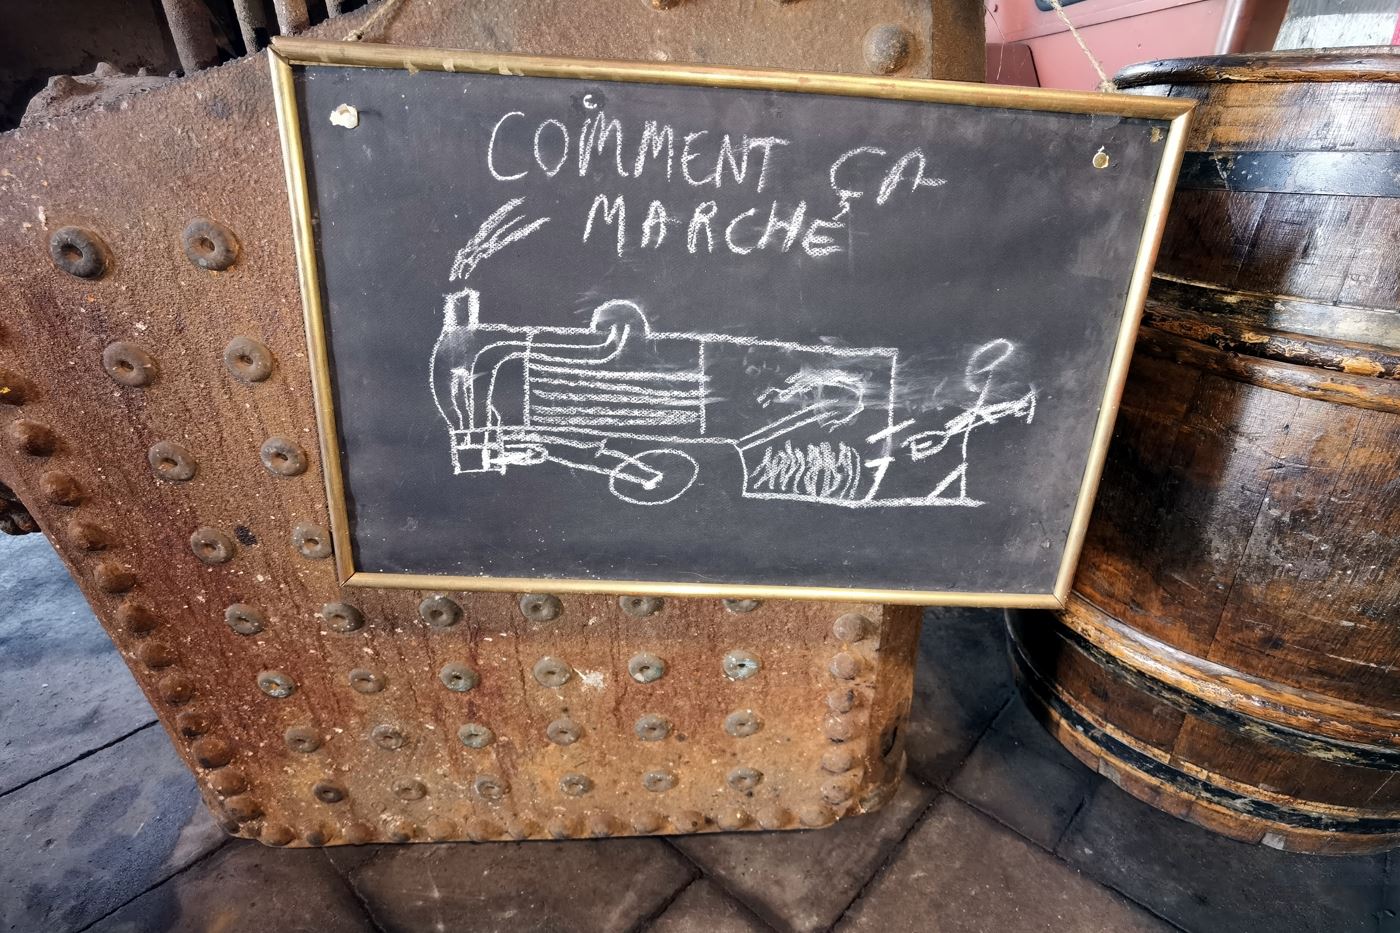 COMMENT ÇA
MARCHE